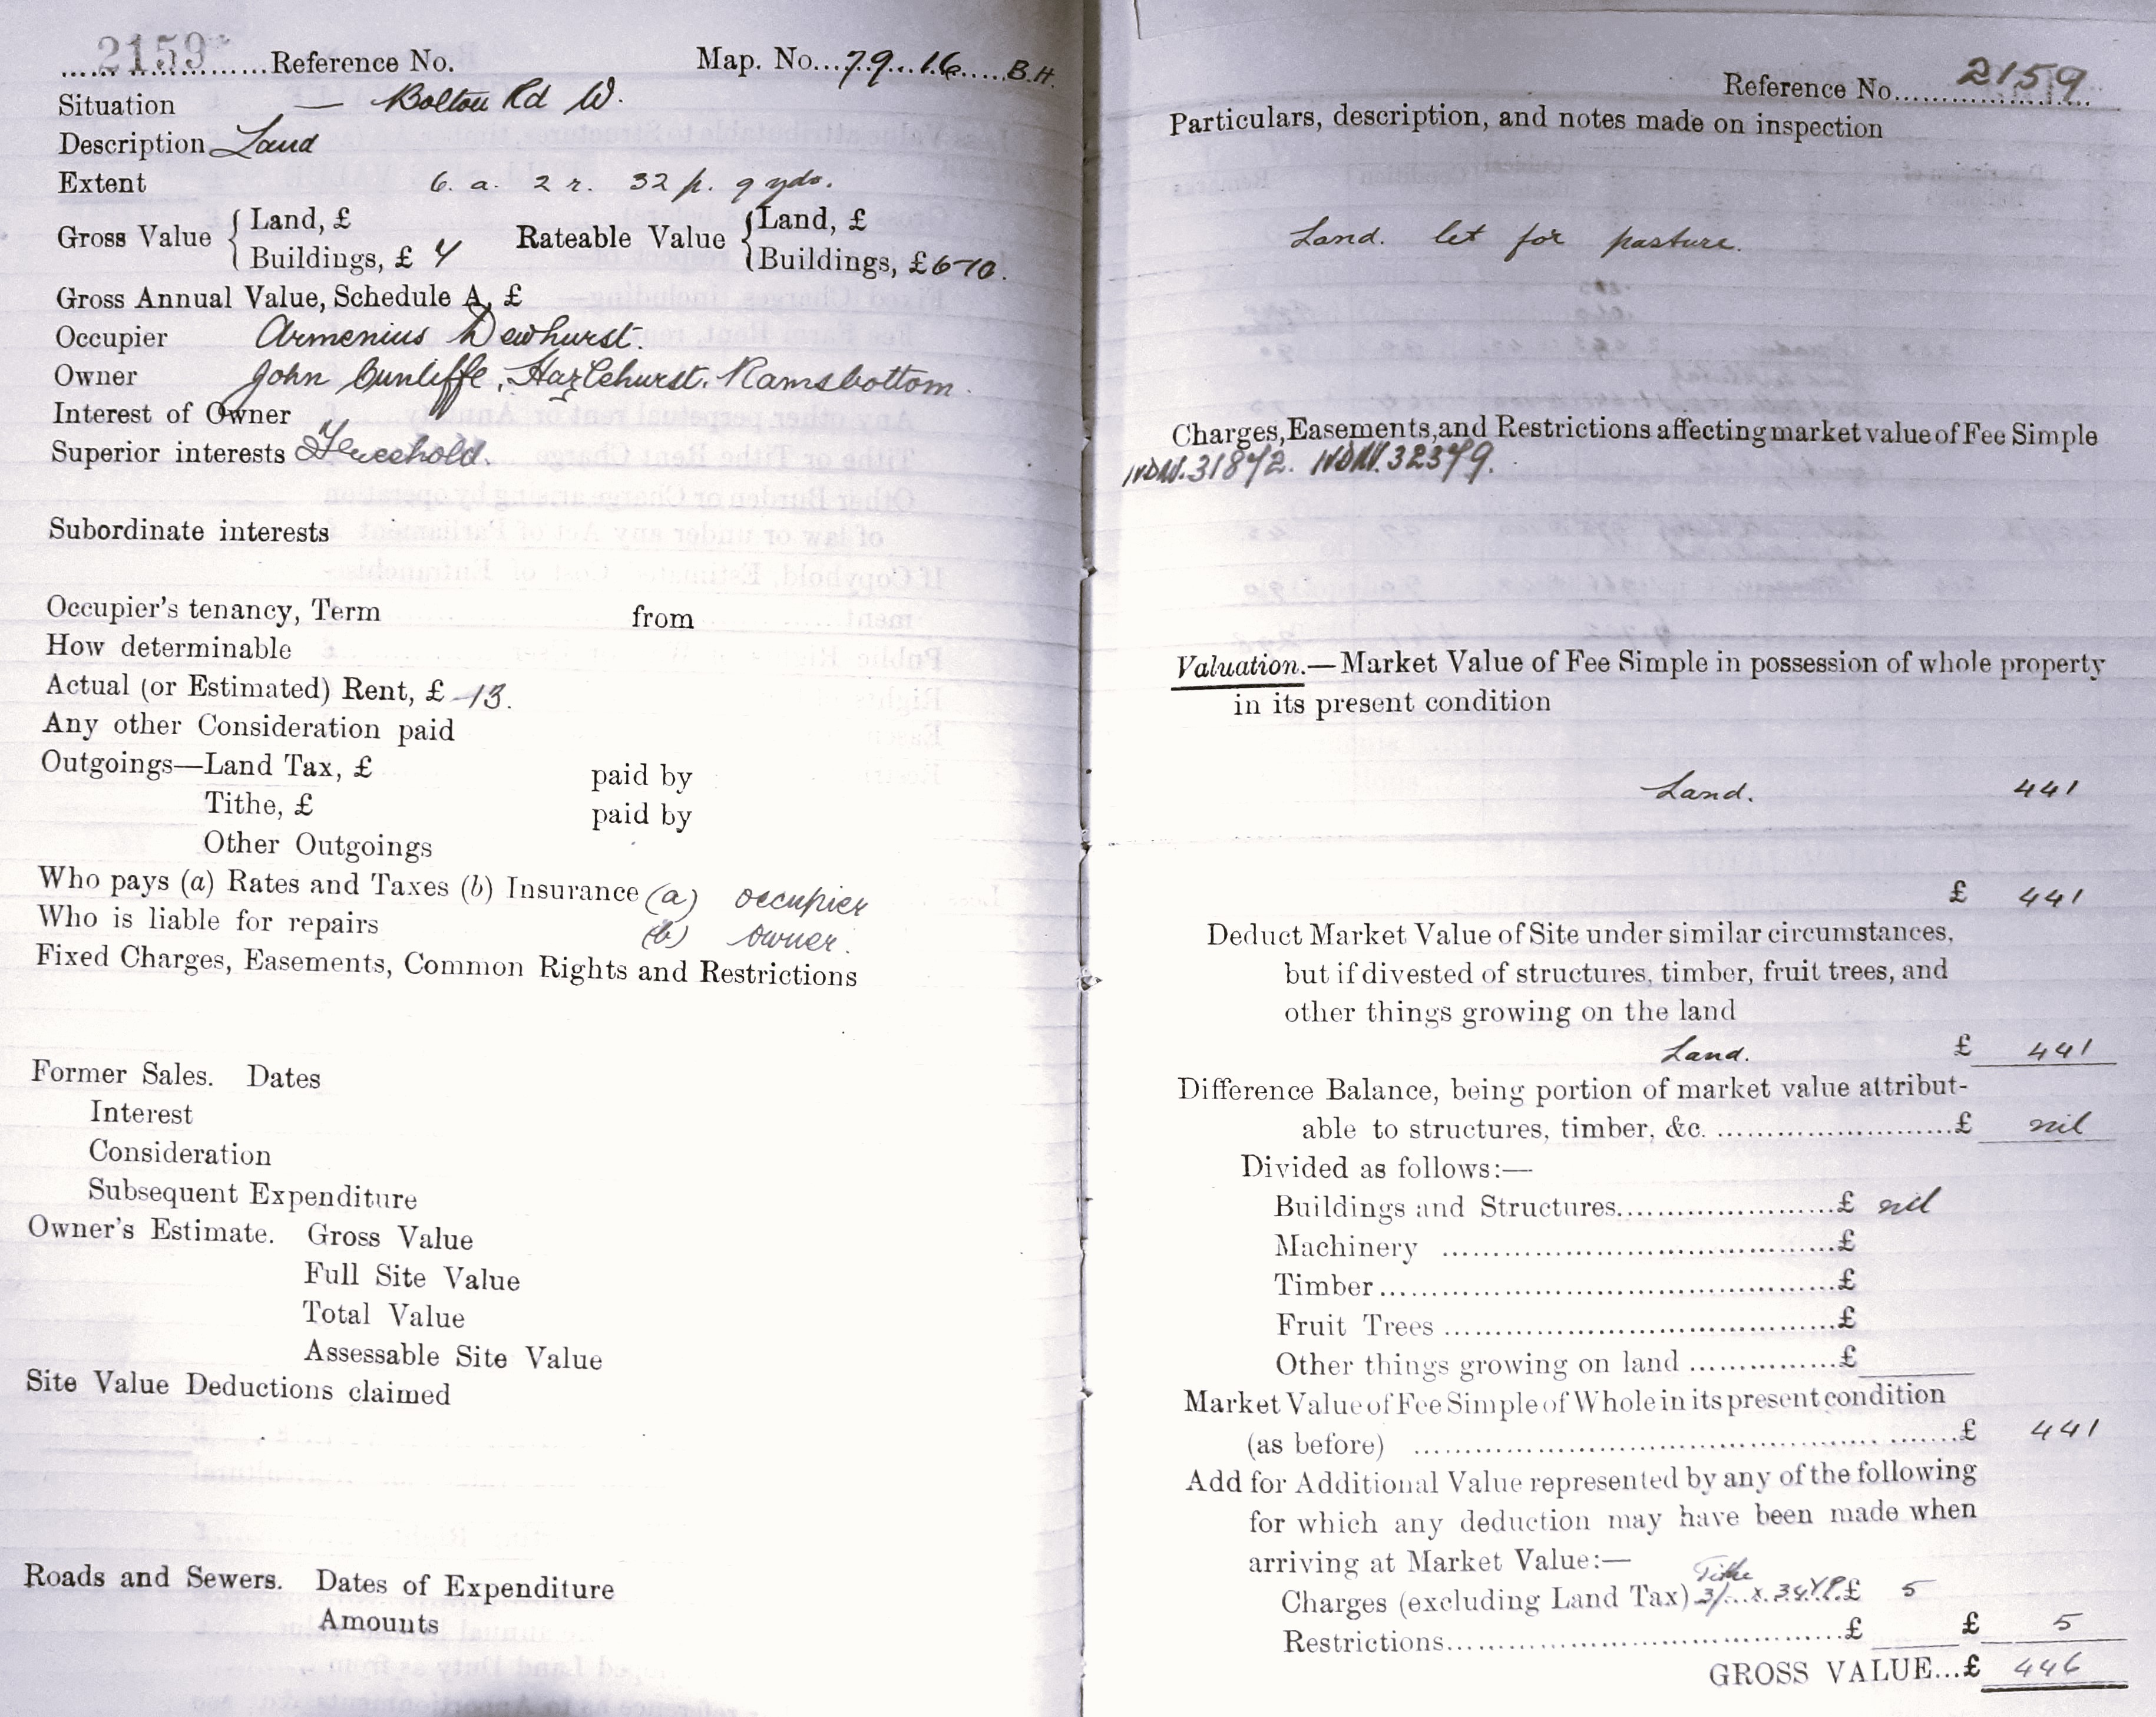 2159 Reference No. Map. No. 79.16 B.H.
Situation — Bolton Rd W.
Description Land
Extent 6. a. 2 r. 32 p. 9 yds.
Gross Value { Land, £ Rateable Value { Land, £
Buildings, £ 4 Buildings, £
Gross Annual Value, Schedule A, £
Occupier Armenius Dewhurst.
Owner John Cunliffe, Hazlehurst. Ramsbottom.
Interest of Owner
Superior interests
Subordinate interests
Occupier's tenancy, Term from
How determinable
Actual (or Estimated) Rent, £ 13.
Any other Consideration paid
Outgoings—Land Tax, £ paid by
Tithe, £ paid by
Other Outgoings
Who pays (a) Rates and Taxes (b) Insurance (a) occupier
Who is liable for repairs (b) owner.
Fixed Charges, Easements, Common Rights and Restrictions
Former Sales. Dates
Interest
Consideration
Subsequent Expenditure
Owner's Estimate. Gross Value
Full Site Value
Total Value
Assessable Site Value
Site Value Deductions claimed
Roads and Sewers. Dates of Expenditure
Amounts
Reference No. 2159
Particulars, description, and notes made on inspection
Land. let for pasture.
Charges, Easements, and Restrictions affecting market value of Fee Simple
31872. 32379.
Valuation.—Market Value of Fee Simple in possession of whole property
in its present condition
Land. 441
£ 441
Deduct Market Value of Site under similar circumstances,
but if divested of structures, timber, fruit trees, and
other things growing on the land
Land. £ 441
Difference Balance, being portion of market value attribut-
able to structures, timber, &c. £ nil
Divided as follows:—
Buildings and Structures £ nil
Machinery £
Timber £
Fruit Trees £
Other things growing on land £
Market Value of Fee Simple of Whole in its present condition
(as before) £ 441
Add for Additional Value represented by any of the following
for which any deduction may have been made when
arriving at Market Value:—
Tithe
Charges (excluding Land Tax) 3/- x 34 Y.P. £ 5
Restrictions £ £ 5
GROSS VALUE...£ 446